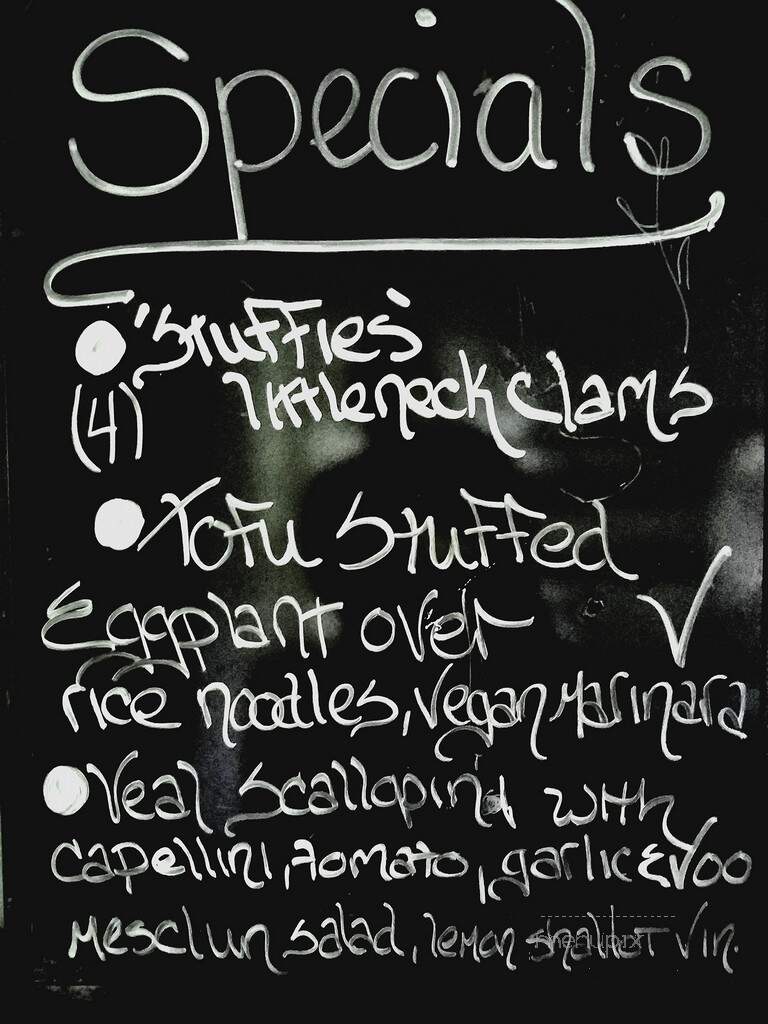 Specials
"Stuffies"
(4) littleneck clams
Tofu Stuffed
Eggplant over V
rice noodles, vegan Marinara
Veal Scallopini with
capellini, tomato, garlic EVOO
Mesclun salad, lemon shallot Vin.
menupix